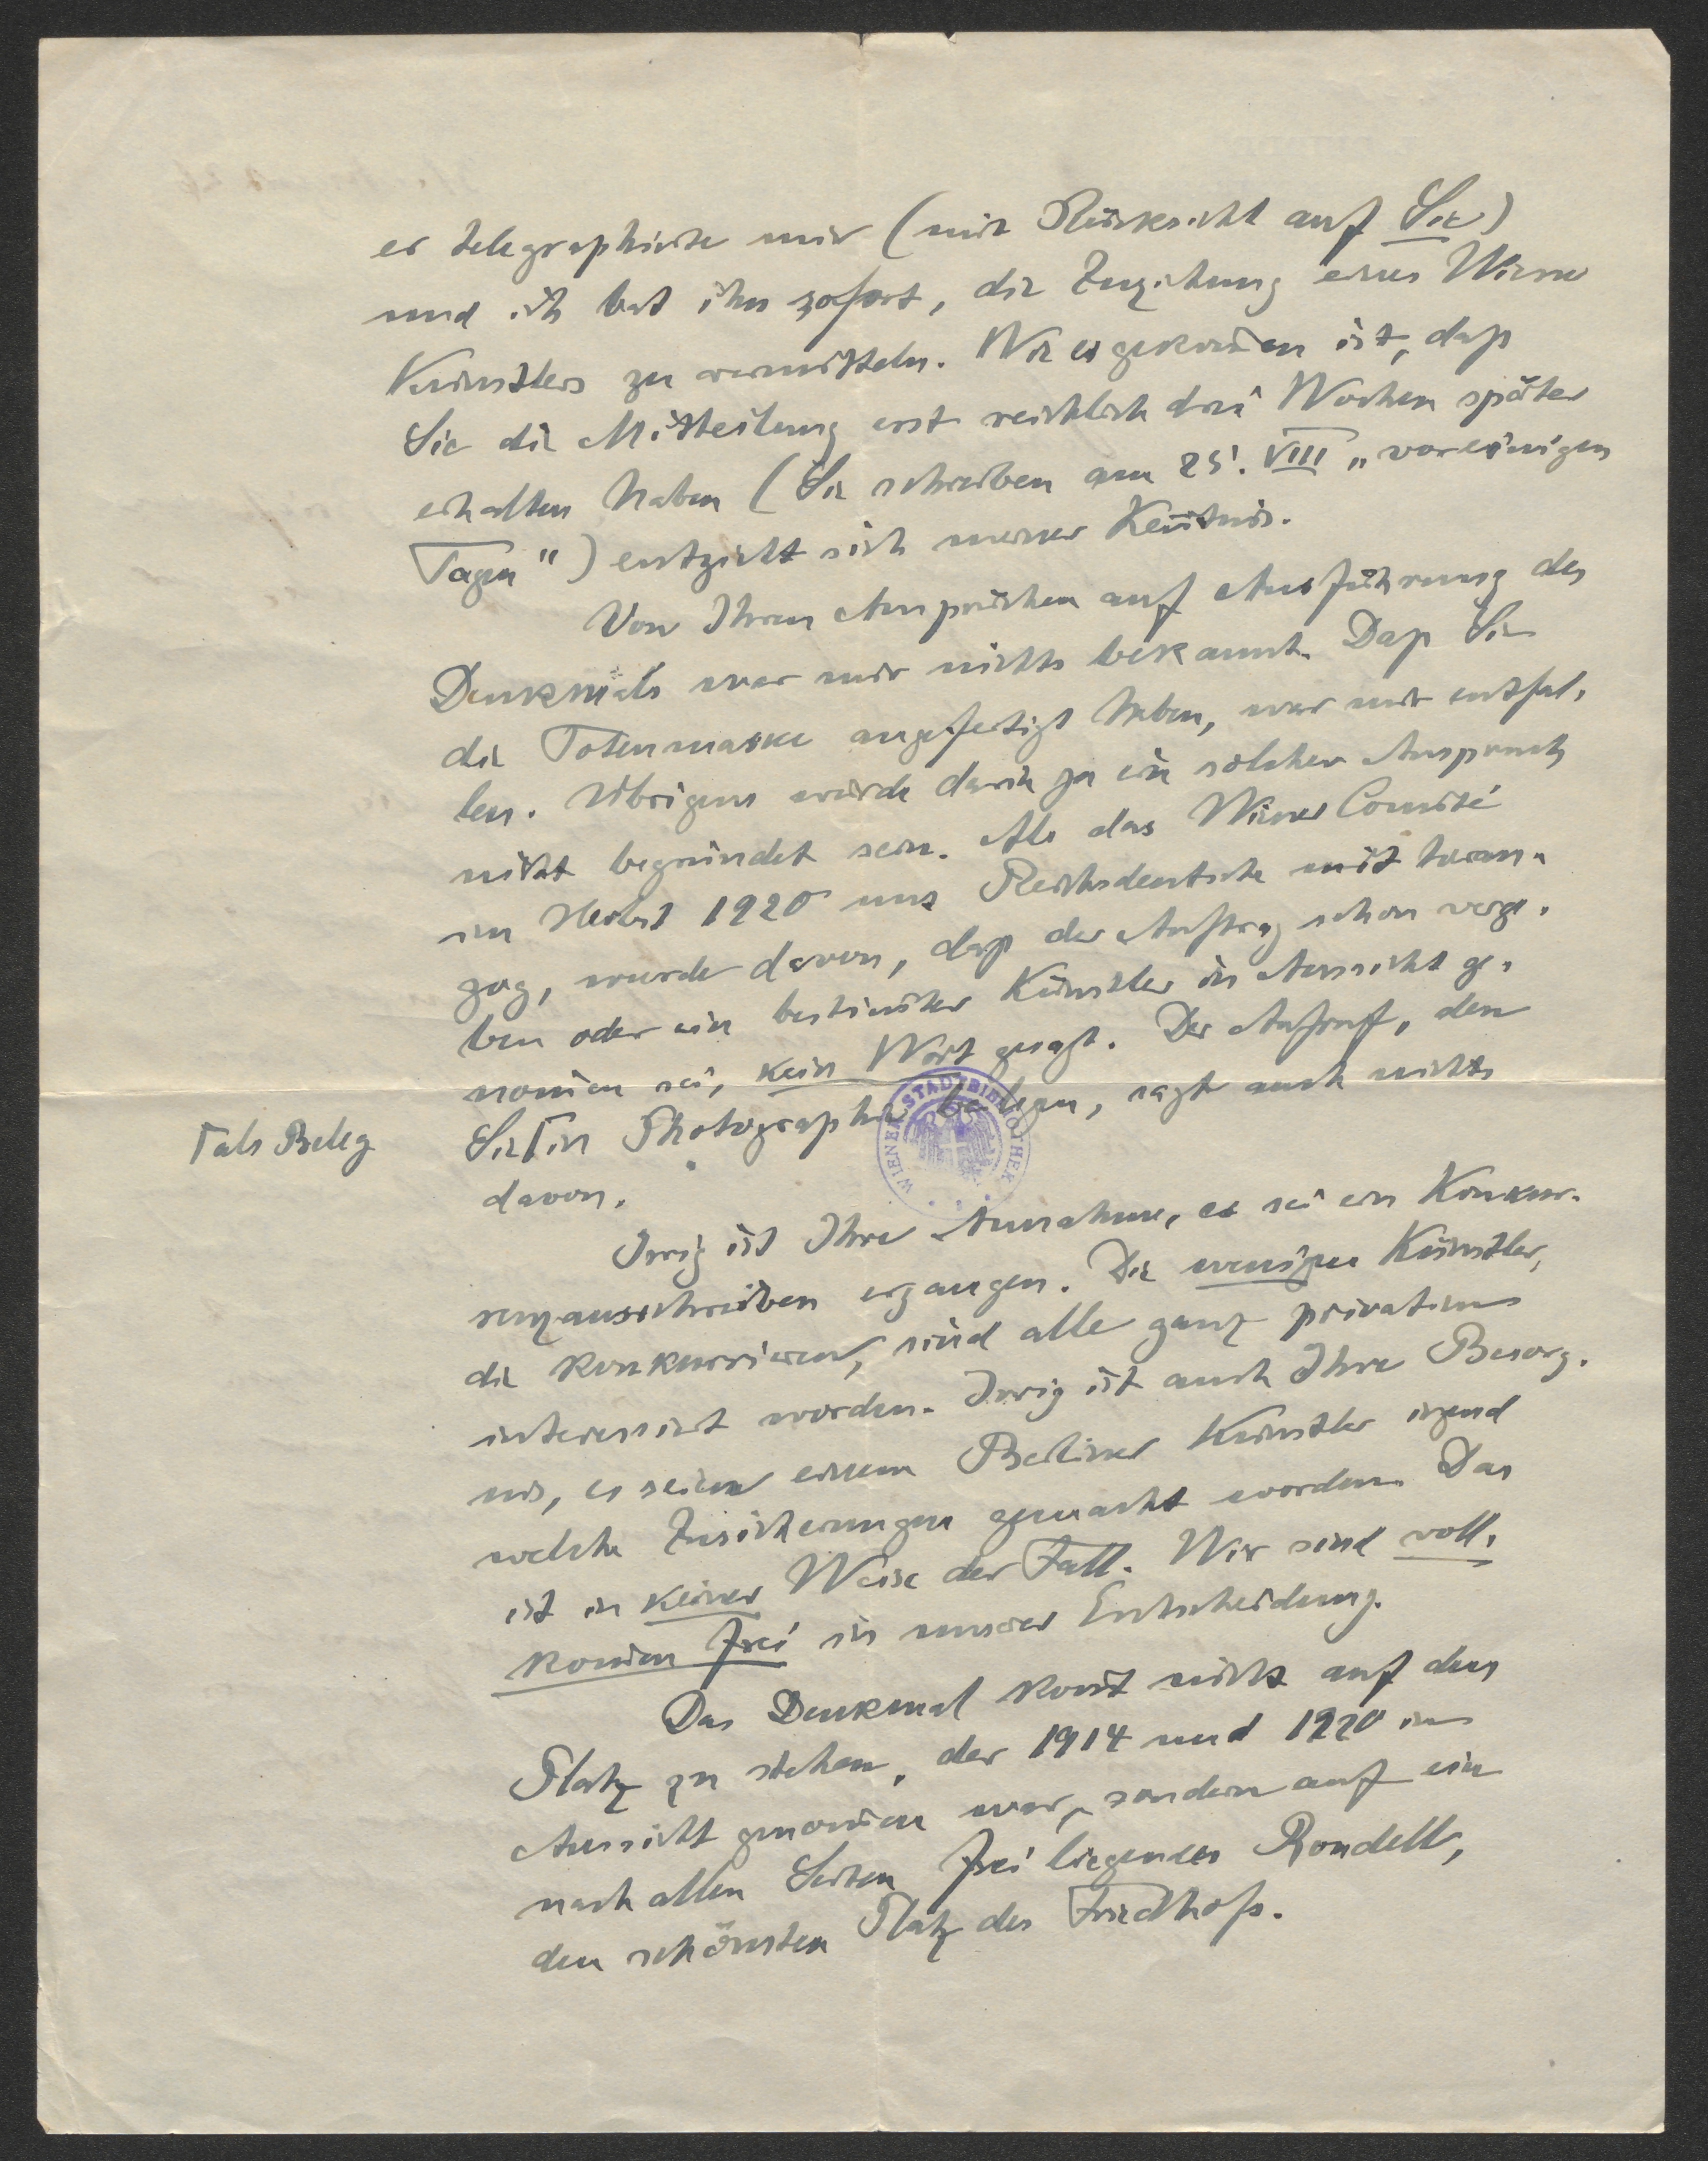 er telegraphirte mir (mit Rücksicht auf Sie)
und ich bat ihn sofort, die Zuziehung eines Wiener
Künstlers zu vermitteln. Wie es gekom̄en ist, daß
Sie die Mitteilung erst reichlich drei Wochen später
erhalten haben (Sie schreiben am 25. VIII „vor einigen
Tagen") entzieht sich meiner Ken̄tnis.
Von Ihren Ansprüchen auf Ausführung des
Denkmals war mir nichts bekannt. Daß Sie
die Totenmaske angefertigt haben, war mir entfal-
len. Übrigens würde darin ja ein solcher Anspruch
nicht begründet sein. Als das Wiener Comité
im Herbst 1920 uns Reichsdeutsche mit heran-
zog, wurde davon, daß der Auftrag schon verge-
ben oder ein bestim̄ter Künstler in Aussicht ge-
nom̄en sei, kein Wort gesagt. Der Aufruf, den
Sie Γ in Photographie beilegen, sagt auch nichts
Γ als Beleg
davon.
WIENER STADTBIBLIOTHEK
Irrig ist Ihre Annahme, es sei ein Konkur-
renzausschreiben ergangen. Die wenigen Künstler,
die konkurrieren, sind alle ganz privatim
interessirt worden. Irrig ist auch Ihre Besorg-
nis, es seien einem Berliner Künstler irgend
welche Zusicherungen gemacht worden. Das
ist in keiner Weise der Fall. Wir sind voll-
kom̄en frei in unserer Entscheidung.
Das Denkmal kom̄t nicht auf den
Platz zu stehen, der 1914 und 1920 in
Aussicht genom̄en war, sondern auf ein
nach allen Seiten frei liegendes Rondell,
den schönsten Platz des Friedhofs.